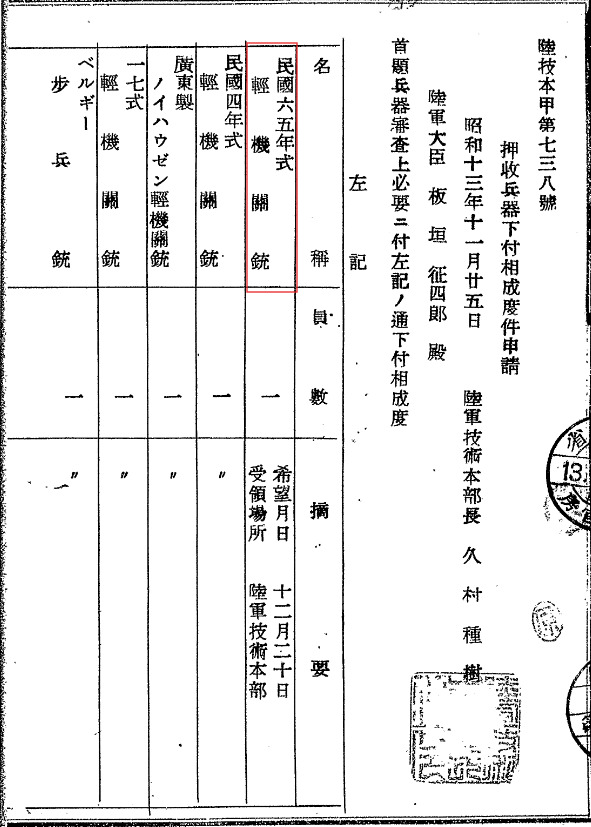 陸技本甲第七三八號
押收兵器下付相成度件申請
昭和十三年十一月廿五日　陸軍技術本部長　久村種樹
陸軍大臣　板垣征四郎殿
首題兵器審査上必要ニ付左記ノ通下付相成度
左記
名稱　員數　摘要
民國六五年式輕機關銃　一　希望月日　十二月二十日
受領場所　陸軍技術本部
民國四年式輕機關銃　一　〃
廣東製ノイハウゼン輕機關銃　一　〃
一七式輕機關銃　一　〃
ベルギー步兵銃　一　〃
13